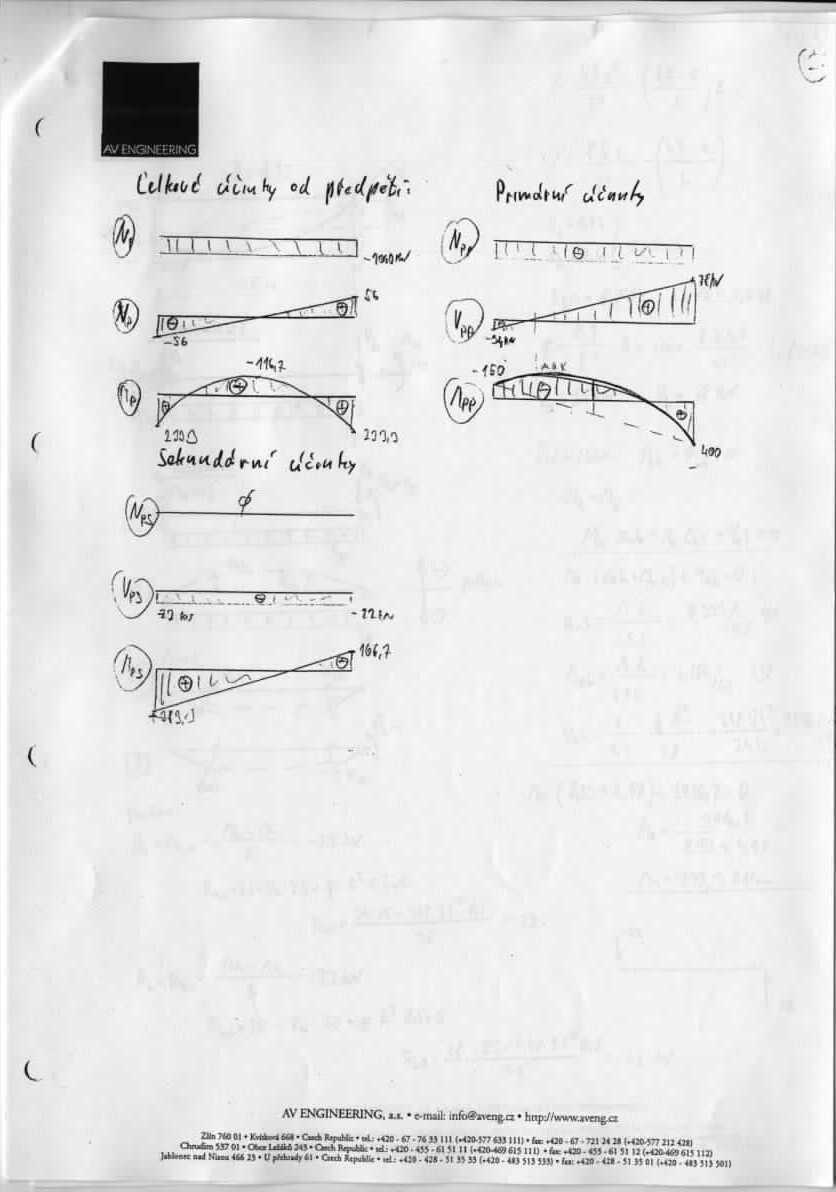 AV ENGINEERING
Celkové účinky od předpětí:
Np
-1000 kN
Vp
-56
56
Mp
-116,7
233,3
Primární účinky
Npp
Vpp
-34kN
78kN
Mpp
-150
MAX
400
Sekundární účinky
Nps
ϕ
Vps
-22 kN
-22 kN
Mps
166,7
AV ENGINEERING, a.s. • e-mail: info@aveng.cz • http://www.aveng.cz
Zlín 760 01 • Kvítková 668 • Czech Republic • tel.: +420 - 67 - 76 33 111 (+420-577 633 111) • fax: +420 - 67 - 721 24 28 (+420-577 212 428)
Chrudim 537 01 • Obce Ležáků 245 • Czech Republic • tel.: +420 - 455 - 61 51 11 (+420-469 615 111) • fax: +420 - 455 - 61 51 12 (+420-469 615 112)
Jablonec nad Nisou 466 23 • U přehrady 61 • Czech Republic • tel.: +420 - 428 - 51 35 33 (+420 - 483 513 533) • fax: +420 - 428 - 51 35 01 (+420 - 483 513 501)